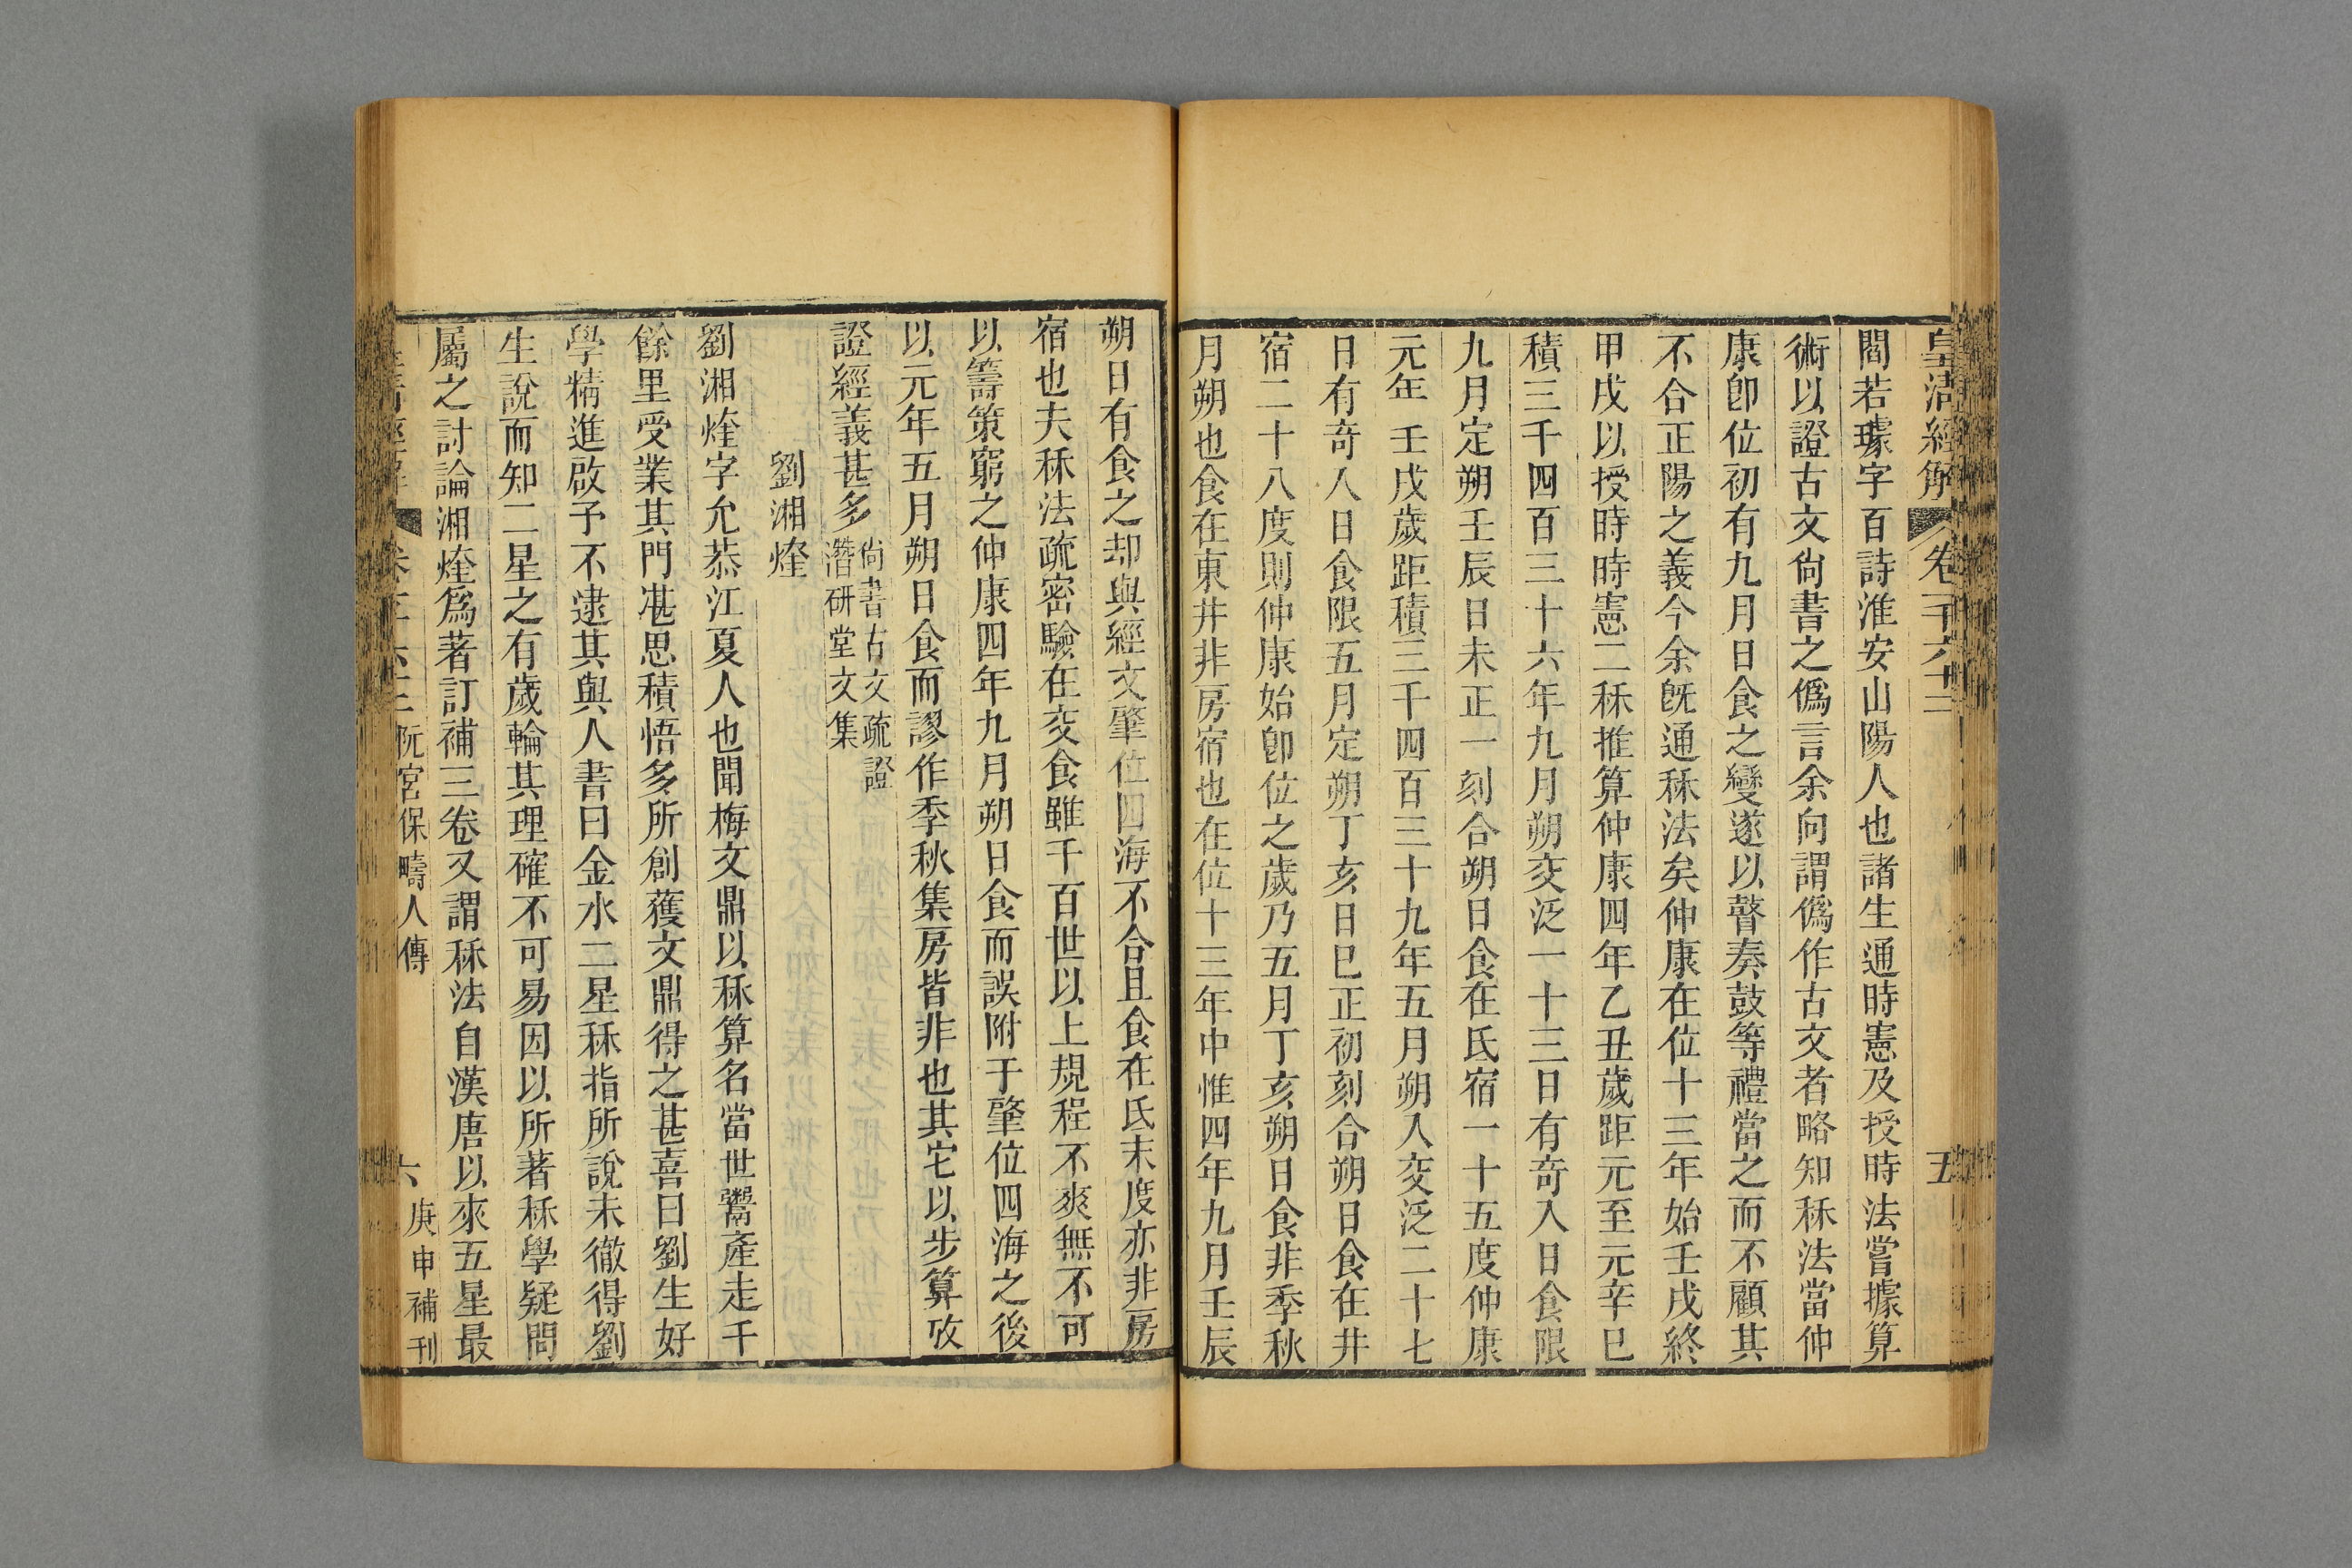 皇清經解 卷一千六十二 五
閻若璩字百詩淮安山陽人也諸生通時憲及授時法嘗據算
術以證古文尙書之僞言余向謂僞作古文者略知秝法當仲
康卽位初有九月日食之變遂以瞽奏鼓等禮當之而不顧其
不合正陽之義今余旣通秝法矣仲康在位十三年始壬戌終
甲戌以授時時憲二秝推算仲康四年乙丑歲距元至元辛巳
積三千四百三十六年九月朔交泛一十三日有奇入日食限
九月定朔壬辰日未正一刻合朔日食在氐宿一十五度仲康
元年壬戌歲距積三千四百三十九年五月朔入交泛二十七
日有奇入日食限五月定朔丁亥日巳正初刻合朔日食在井
宿二十八度則仲康始卽位之歲乃五月丁亥朔日食非季秋
月朔也食在東井非房宿也在位十三年中惟四年九月壬辰
朔日有食之却與經文肇位四海不合且食在氐末度亦非房
宿也夫秝法疏密驗在交食雖千百世以上規程不爽無不可
以籌策窮之仲康四年九月朔日食而誤附于肇位四海之後
以元年五月朔日食而謬作季秋集房皆非也其它以步算攷
證經義甚多尙書古文疏證
潛研堂文集
劉湘煃
劉湘煃字允恭江夏人也聞梅文鼎以秝算名當世鬻產走千
餘里受業其門湛思積悟多所創獲文鼎得之甚喜曰劉生好
學精進啟予不逮其與人書曰金水二星秝指所說未徹得劉
生說而知二星之有歲輪其理確不可易因以所著秝學疑問
屬之討論湘煃爲著訂補三卷又謂秝法自漢唐以來五星最
阮宮保疇人傳 六 庚申補刊